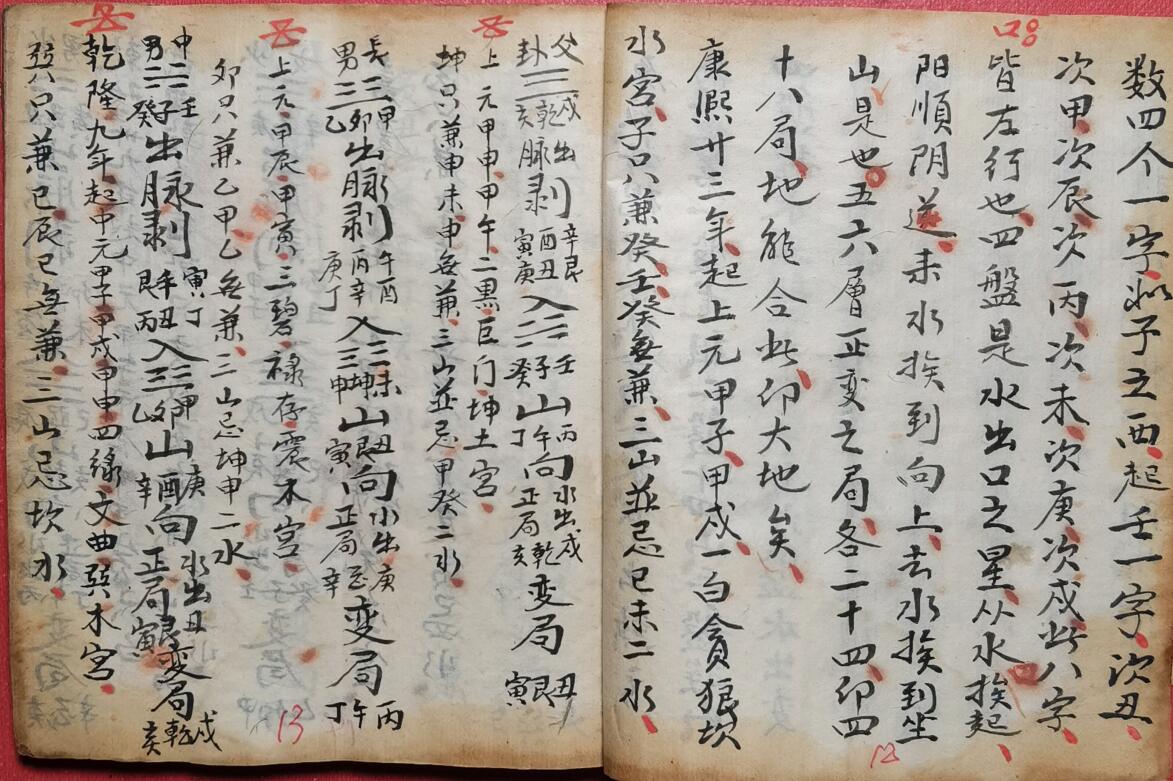 数四个一字、如子之西、起壬一字、次丑、
次甲、次辰、次丙、次未、次庚、次戍、此八字、
皆左行也、四盤是水出口之星、从水挨起、
阳順阴逆、来水挨到向上、去水挨到坐
山是也。五六層正变之局、各二十四、卬四
十八局、地能合此、卬大地矣、
康熙廿三年、起上元甲子、甲戍、一白貪狼坎
水宫、子只兼癸、壬癸無兼、三山並忌巳未二水、
父卦三戍乾亥出脉剥辛酉庚艮丑寅入三壬子癸山丙午丁向水出戍乾亥正局变局丑艮寅
上元甲申、甲午、二黒巨门、坤土宫、
坤只兼申、未申無兼、三山並忌甲癸二水、
長男三甲卯乙出脉剥午丙丁酉辛庚入三未坤申山丑艮寅向水出庚酉辛正局变局丙午丁
上元甲辰、甲寅、三碧、禄存震木宫、
卯只兼乙、甲乙無兼、三山忌坤申二水、
中男三壬子癸出脉剥寅艮丑丁午丙入三甲卯乙山庚酉辛向水出丑艮寅正局变局戍乾亥
乾隆九年、起中元甲子甲戍甲申四绿文曲巽木宫、
巽只兼巳、辰巳無兼、三山忌坎水、
13
12